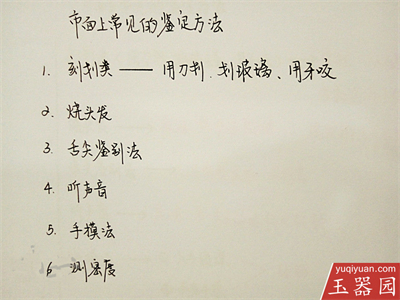 市面上常见的鉴定方法
1. 刻划类 —— 用刀判、划玻璃、用牙咬
2. 烧头发
3. 舌尖鉴别法
4. 听声音
5. 手摸法
6 测密度
yuqiyuan.com
玉器园